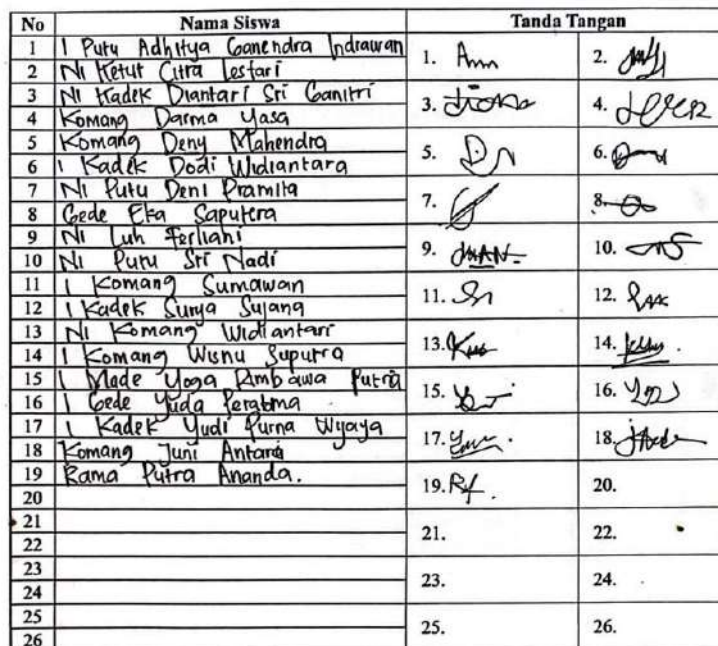 No Nama Siswa Tanda Tangan
1 I Putu Adhitya Ganendra Indrawan 1. 2.
2 Ni Ketut Citra Lestari
3 Ni Kadek Diantari Sri Ganitri 3. 4.
4 Komang Darma Yasa
5 Komang Deny Mahendra 5. 6.
6 I Kadek Dodi Widiantara
7 Ni Putu Deni Pramita 7. 8.
8 Gede Eka Saputera
9 Ni Luh Ferliani 9. 10.
10 Ni Putu Sri Nadi
11 I Komang Sumawan 11. 12.
12 I Kadek Surya Sujana
13 Ni Komang Widiantari 13. 14.
14 I Komang Wisnu Suputra
15 I Made Yoga Ambawa Putra 15. 16.
16 I Gede Yuda
17 I Kadek Yudi Purna Wijaya 17. 18.
18 Komang Juni Antara
19 Rama Putra Ananda. 19. 20.
20
21 21. 22.
22
23 23. 24.
24
25 25. 26.
26